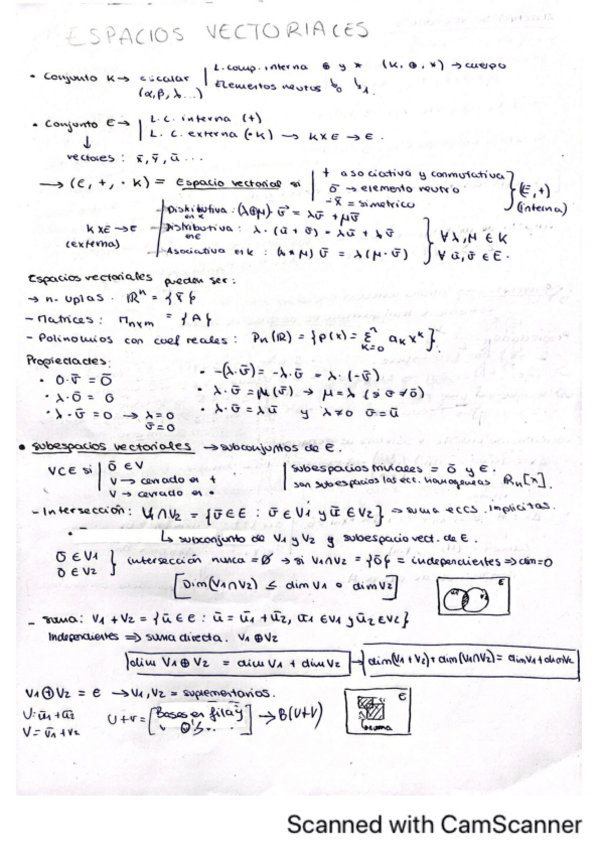 ESPACIOS VECTORIALES
• Conjunto K → escalar (α, β, λ...) | L. comp. interna ⊕ y * (K, ⊕, *) → cuerpo
Elementos neutros
• Conjunto E → | L.C. interna (+)
L.C. externa (·K) → K×E → E.
↓
vectores: x̄, ȳ, ū...
→ (E, +, ·K) = Espacio vectorial si | + asociativa y conmutativa
ō → elemento neutro } (E, +) (interna)
-x̄ = simetrico
K×E → E (externa)
Distributiva en K: (λ⊕μ)·v̄ = λv̄ + μv̄
Distributiva en E: λ·(ū + v̄) = λū + λv̄
Asociativa en K: (λ*μ) v̄ = λ(μ·v̄)
∀λ, μ ∈ K
∀ū, v̄ ∈ E.
Espacios vectoriales pueden ser:
→ n-uplas. ℝⁿ = {x̄}
- Matrices: Mnxm = {A}
- Polinomios con coef reales: Pn(ℝ) = {p(x) = Σ aₖxᵏ} n k=0
Propiedades:
• 0·v̄ = ō
• λ·ō = ō
• λ·v̄ = 0 → λ=0 v̄=0
• -(λ·v̄) = -λ·v̄ = λ·(-v̄)
• λ·v̄ = μ(v̄) → μ=λ (si v̄ ≠ ō)
• λ·v̄ = λū y λ≠0 v̄=ū
• Subespacios vectoriales → subconjuntos de E.
VCE si | ō ∈ V
V → cerrado en +
V → cerrado en •
subespacios triviales = ō y E.
son subespacios las ecc. homogeneas ℝn[x].
- Intersección: V1∩V2 = {v̄∈E : v̄∈V1 y ū∈V2} → suma eccs. implicitas.
↳ subconjunto de V1 y V2 y subespacio vect. de E.
ō ∈ V1
ō ∈ V2 } intersección nunca = ∅ → si V1∩V2 = {ō} = independientes ⇒ dim=0
[Dim(V1∩V2) ≤ dim V1 o dim V2]
- suma: V1 + V2 = {ū∈E : ū = ū1 + ū2, ū1∈V1 y ū2∈V2}
Independientes ⇒ suma directa. V1⊕V2
dim V1⊕V2 = dim V1 + dim V2 → dim(V1+V2) + dim(V1∩V2) = dimV1 + dimV2
V1⊕V2 = E → V1, V2 = suplementarios.
U = ū1 + ū2
V = v̄1 + v2
U+V = [Bases en filas y 0's...] → B(U+V)
E
suma
Scanned with CamScanner